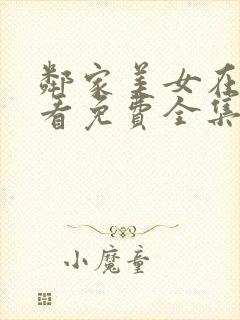 鄰家美女在
看免費全集
小魔童